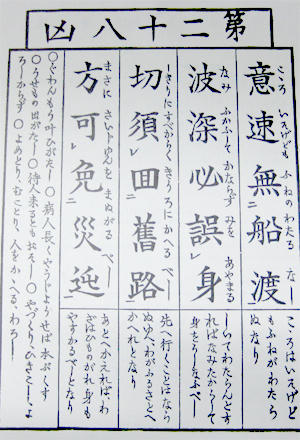 第二十八凶
こゝろ いそげども ふねのわたる なし
意速無船渡
こゝろはいそげど
もふねがわたら
ぬなり
なみ ふかふして かならず みを あやまる
波深必誤レ身
しゐてわたらんとす
ればなみたかうして
身をうしなふべし
しきりにすべからく きうろに かへる べし
切須レ回舊路
先へ行くことはなら
ぬゆへ、わがふるさとへ
かへれとなり
まさに さいじゆんを まぬがる べし
方可レ免災迍
あとへかえれば、わ
ざはひものがれ身も
やすかるべしとなり
○ぐわんもう叶ひがたし ○病人長くやうじようせば本ぶくす
○うせもの出がたし ○待人来るともおそし ○やづくり、ひきこし、よ
ろしからず ○よめとり、むことり、人をかへる、わろし